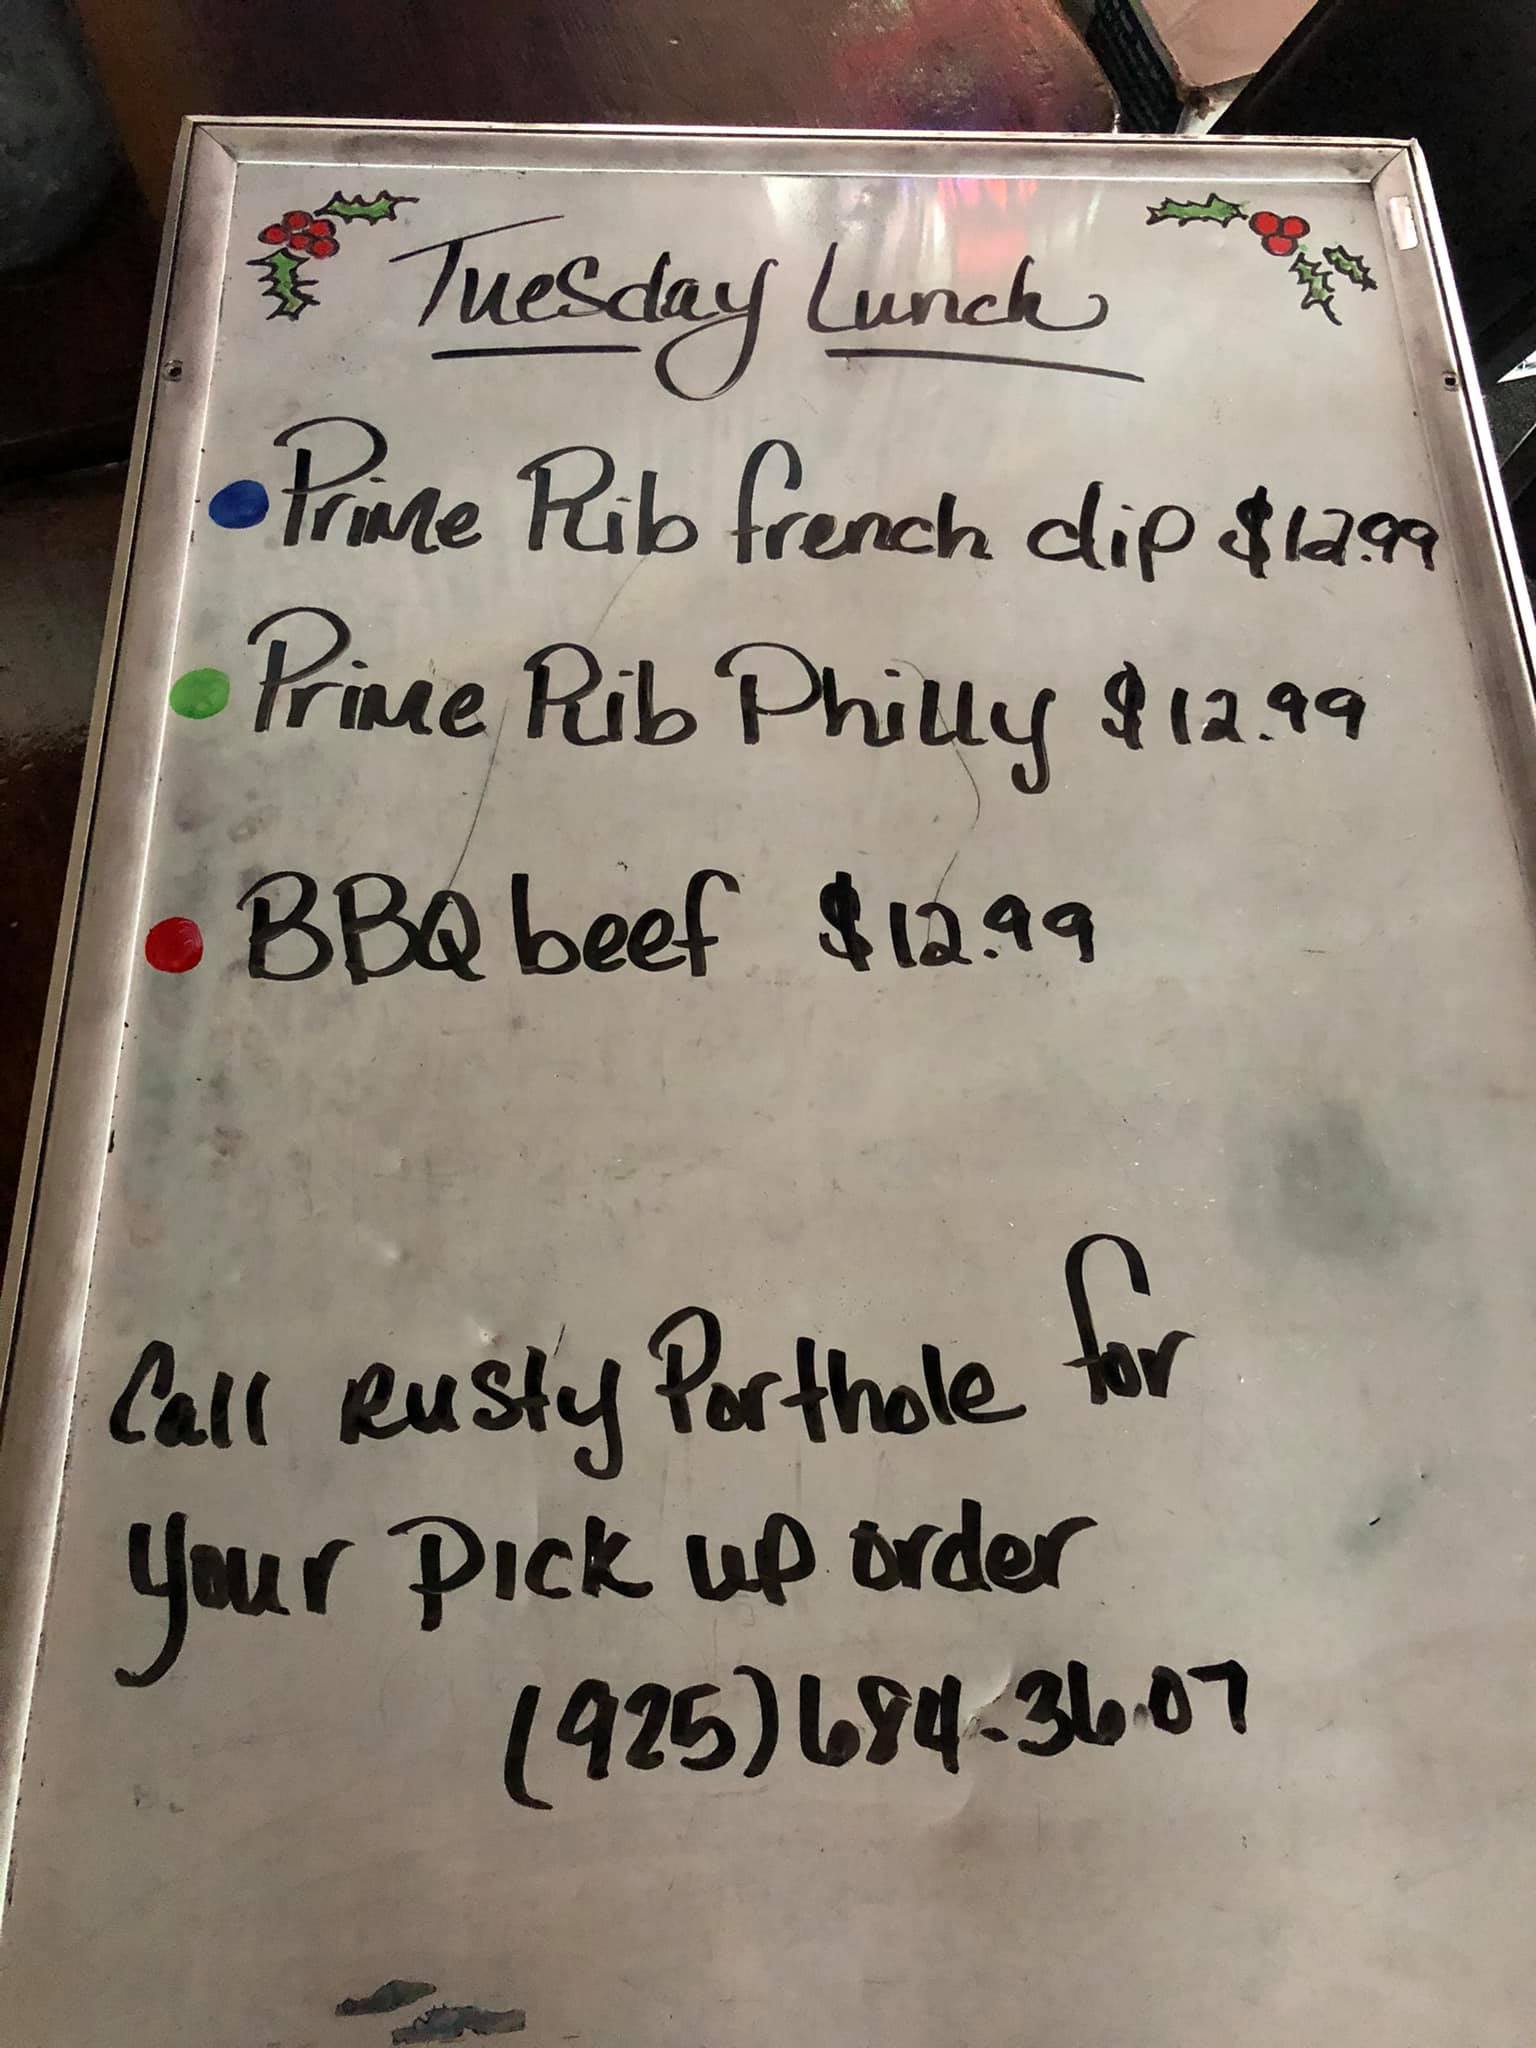 Tuesday Lunch
Prime Rib french dip $12.99
Prime Rib Philly $12.99
BBQ beef $12.99
Call Rusty Porthole for
your pick up order
(925)684-3607